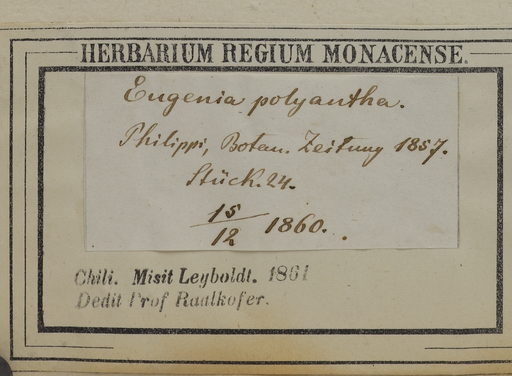 HERBARIUM REGIUM MONACENSE.
Eugenia polyantha.
Philippi, Botan. Zeitung 1857.
Stück. 24.
15/12 1860.
Chili. Misit Leyboldt. 1861
Dedit Prof Radlkofer.